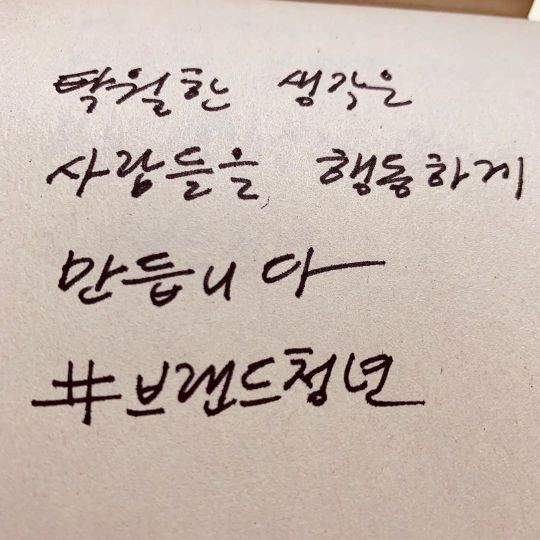 탁월한 생각은
사람들을 행동하게
만듭니다
#브랜드청년